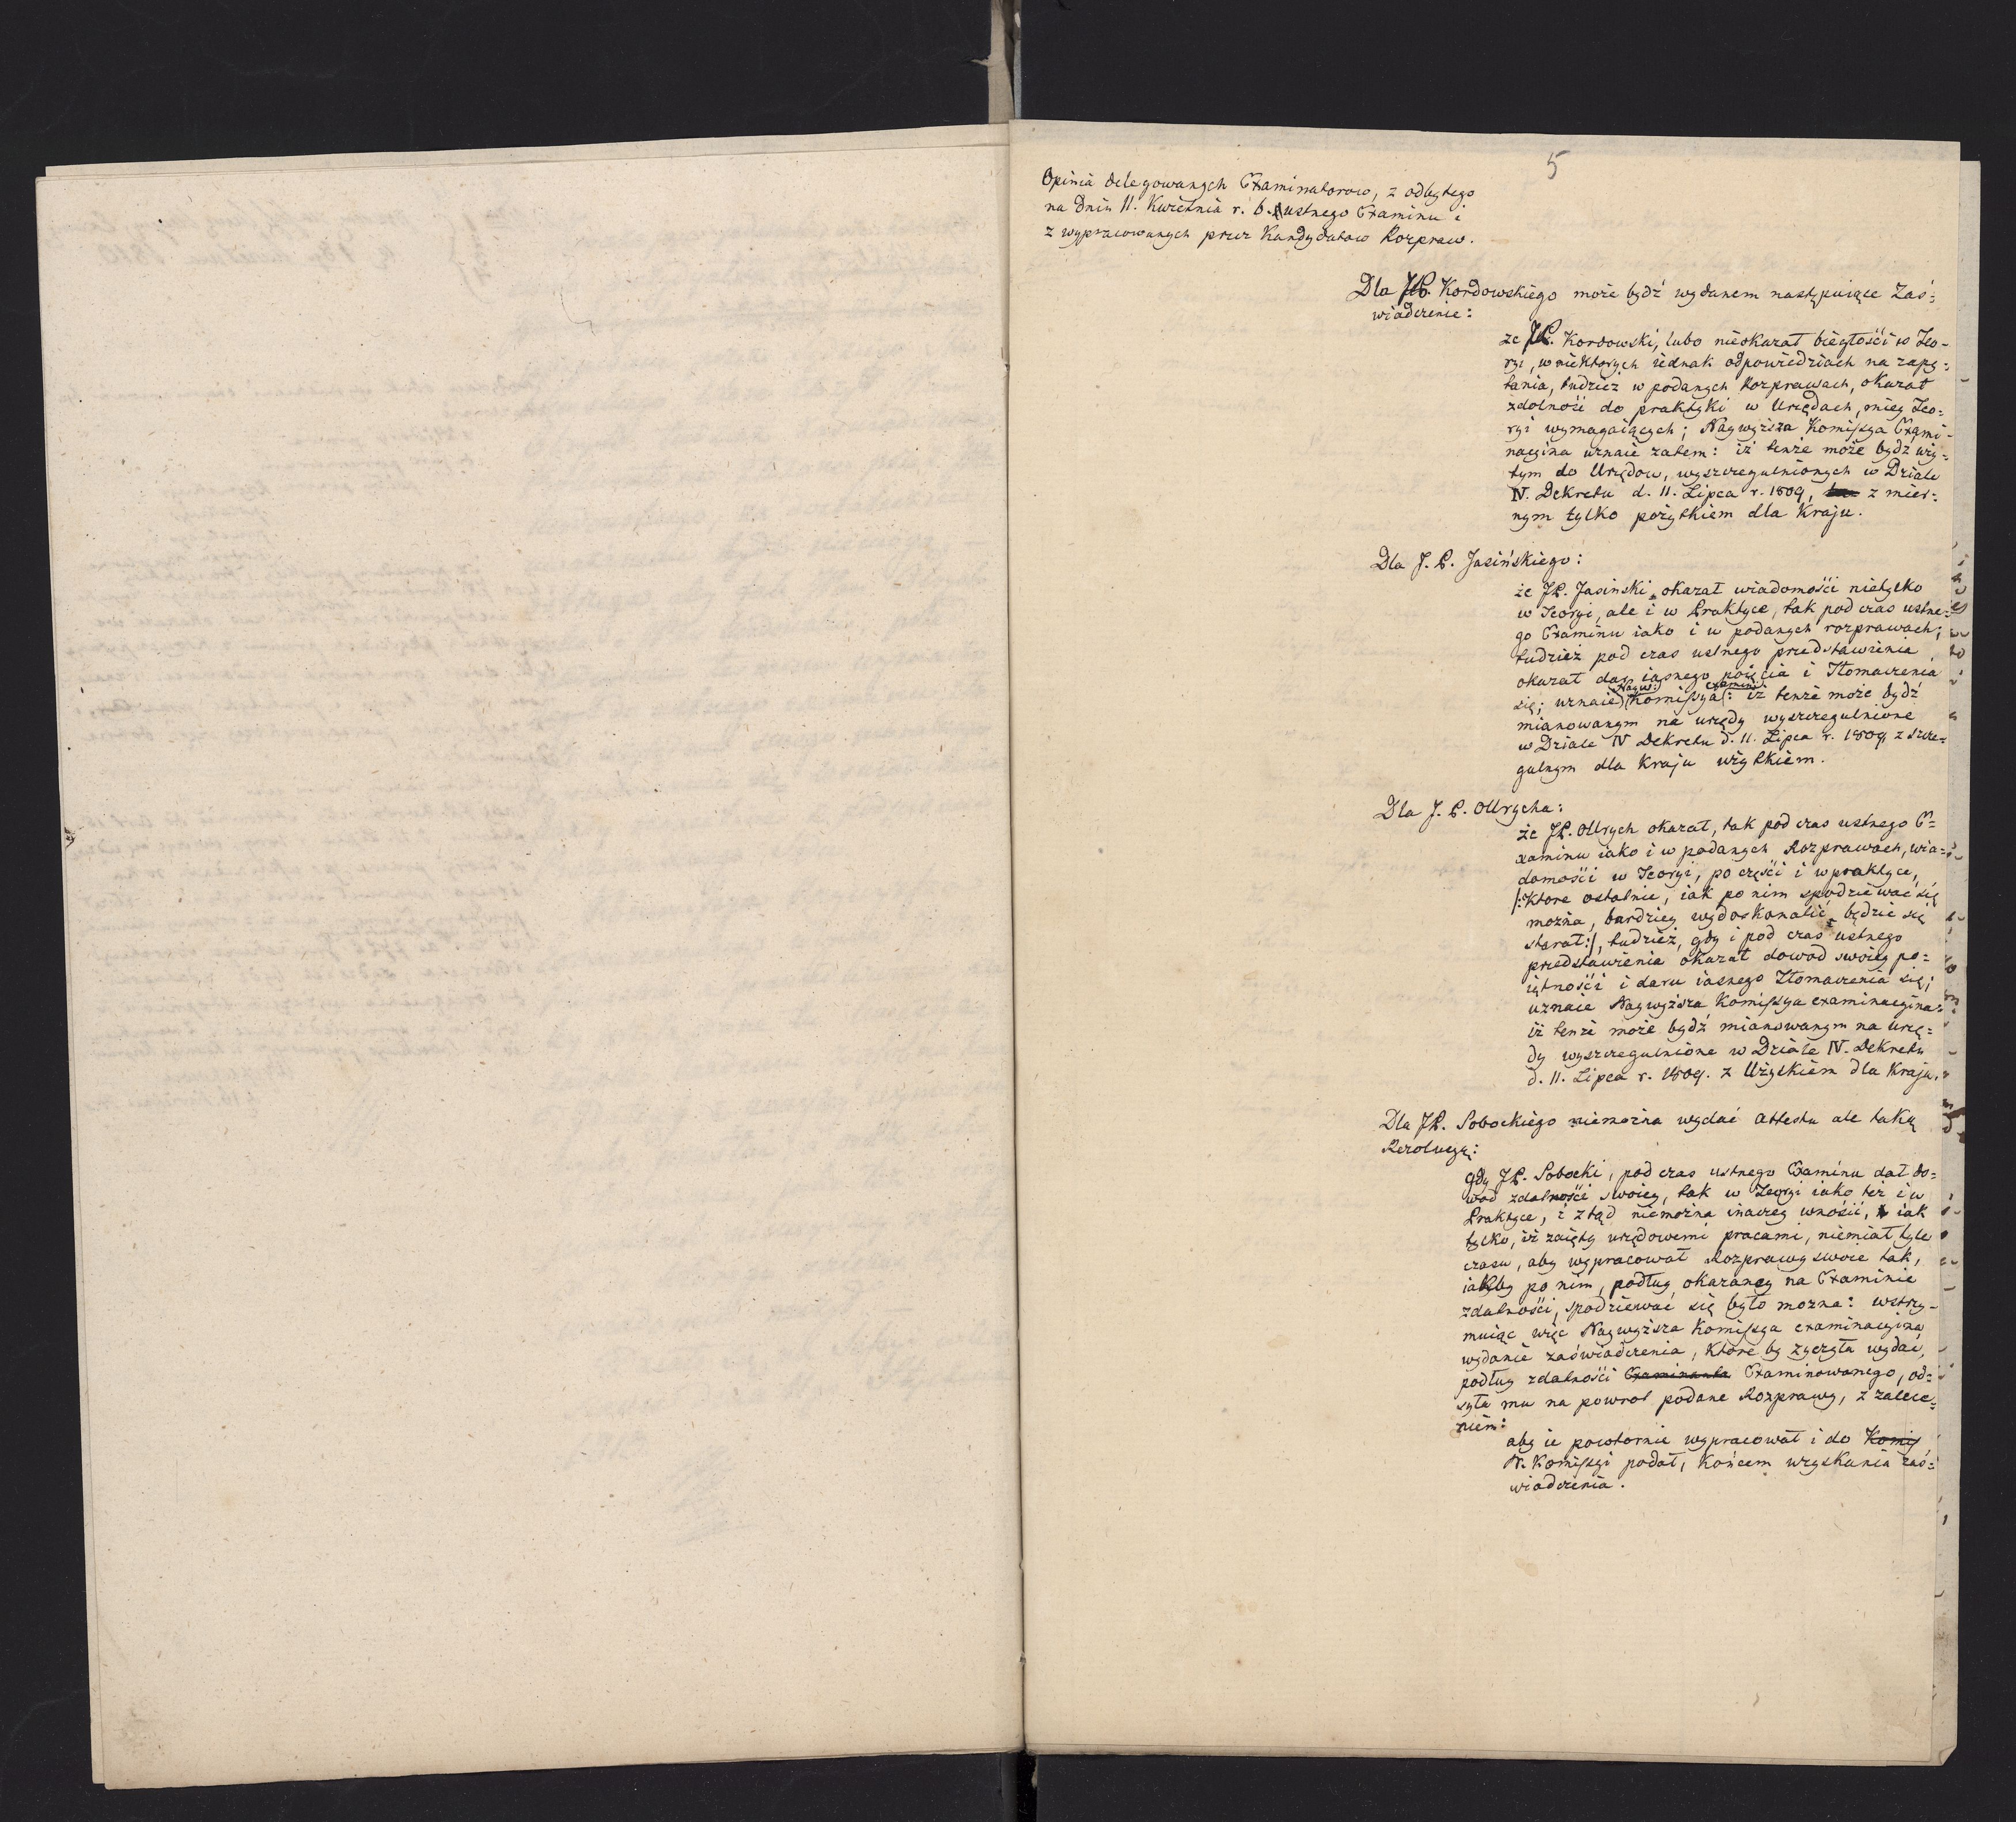 5
Opinia delegowanych Examinatorow, z odbytego
na dniu 11. Kwietnia r. b. ustnego Examinu i
z wypracowanych przez Kandydatow Rozpraw.
Dla JP. Kordowskiego może bydź wydanem następuiące Zaś=
wiadczenie:
że JP. Kordowski, lubo nieokazał biegłości w Teo-
ryi, w niektorych iednak odpowiedziach na zapy=
tania, tudzież w podanych Rozprawach, okazał
zdolność do praktyki w Urzędach, mniey Teo=
ryi wymagaiących; Naywyższa Komissya Exami-
nacyina uznaie zatem: iż tenże może bydź uży=
tym do Urzędow, wyszczegulnionych w Dziale
IV. Dekretu d. 11. Lipca r. 1809, z mier=
nym tylko pożytkiem dla Kraju.
Dla J. P. Jasińskiego:
że JP. Jasinski okazał wiadomości nietylko
w Teoryi, ale i w Praktyce, tak pod czas ustne=
go Examinu iako i w podanych rozprawach;
tudzież pod czas ustnego przedstawienia
okazał dar iasnego poięcia i Tłomaczenia
Nayw: examin:
się; uznaie Komissya: iż tenże może bydź
mianowanym na urzędy wyszczegulnione
w Dziale IV Dekretu d. 11. Lipca r. 1809, z szcze=
gulnym dla Kraju użytkiem.
Dla J. P. Ollrycha:
że JP. Ollrych okazał, tak pod czas ustnego E=
xaminu iako i w podanych Rozprawach, wia=
domości w Teoryi, po części i w praktyce,
/:Ktore ostatnie, iak po nim spodziewać się
można, bardziey wydoskonalić będzie się
starał:/, tudzież, gdy i pod czas ustnego
przedstawienia okazał dowod swoiey po=
iętności i daru iasnego Tłomaczenia się;
uznaie Naywyższa Komissya examinacyina:
iż tenże może bydź mianowanym na urzę=
dy wyszczegulnione w Dziale IV. Dekretu
d. 11. Lipca r. 1809. z Użytkiem dla Kraju.
Dla JP. Sobockiego niemożna wydać Attestu ale taką
Rezolucyą:
gdy JP. Sobocki, pod czas ustnego Examinu dał do=
wod zdatności swoiey, tak w Teoryi iako też i w
Praktyce, i z tąd niemożna inaczey wnosić, iak
tylko, iż zaięty urzędowemi pracami, niemiał tyle
czasu, aby wypracował Rozprawy swoie tak,
iakby po nim, podług okazaney na Examinie
zdatności, spodziewać się było można: wstrzy-
muiąc więc Naywyższa Komissya examinacyina
wydanie zaświadczenia, ktore by życzyła wydać,
podług zdatności Examinanta Examinowanego, od=
syła mu na powrot podane Rozprawy, z zalece=
niem:
aby ie powtornie wypracował i do Komis
N. Komissyi podał, końcem uzyskania zaś=
wiadczenia.